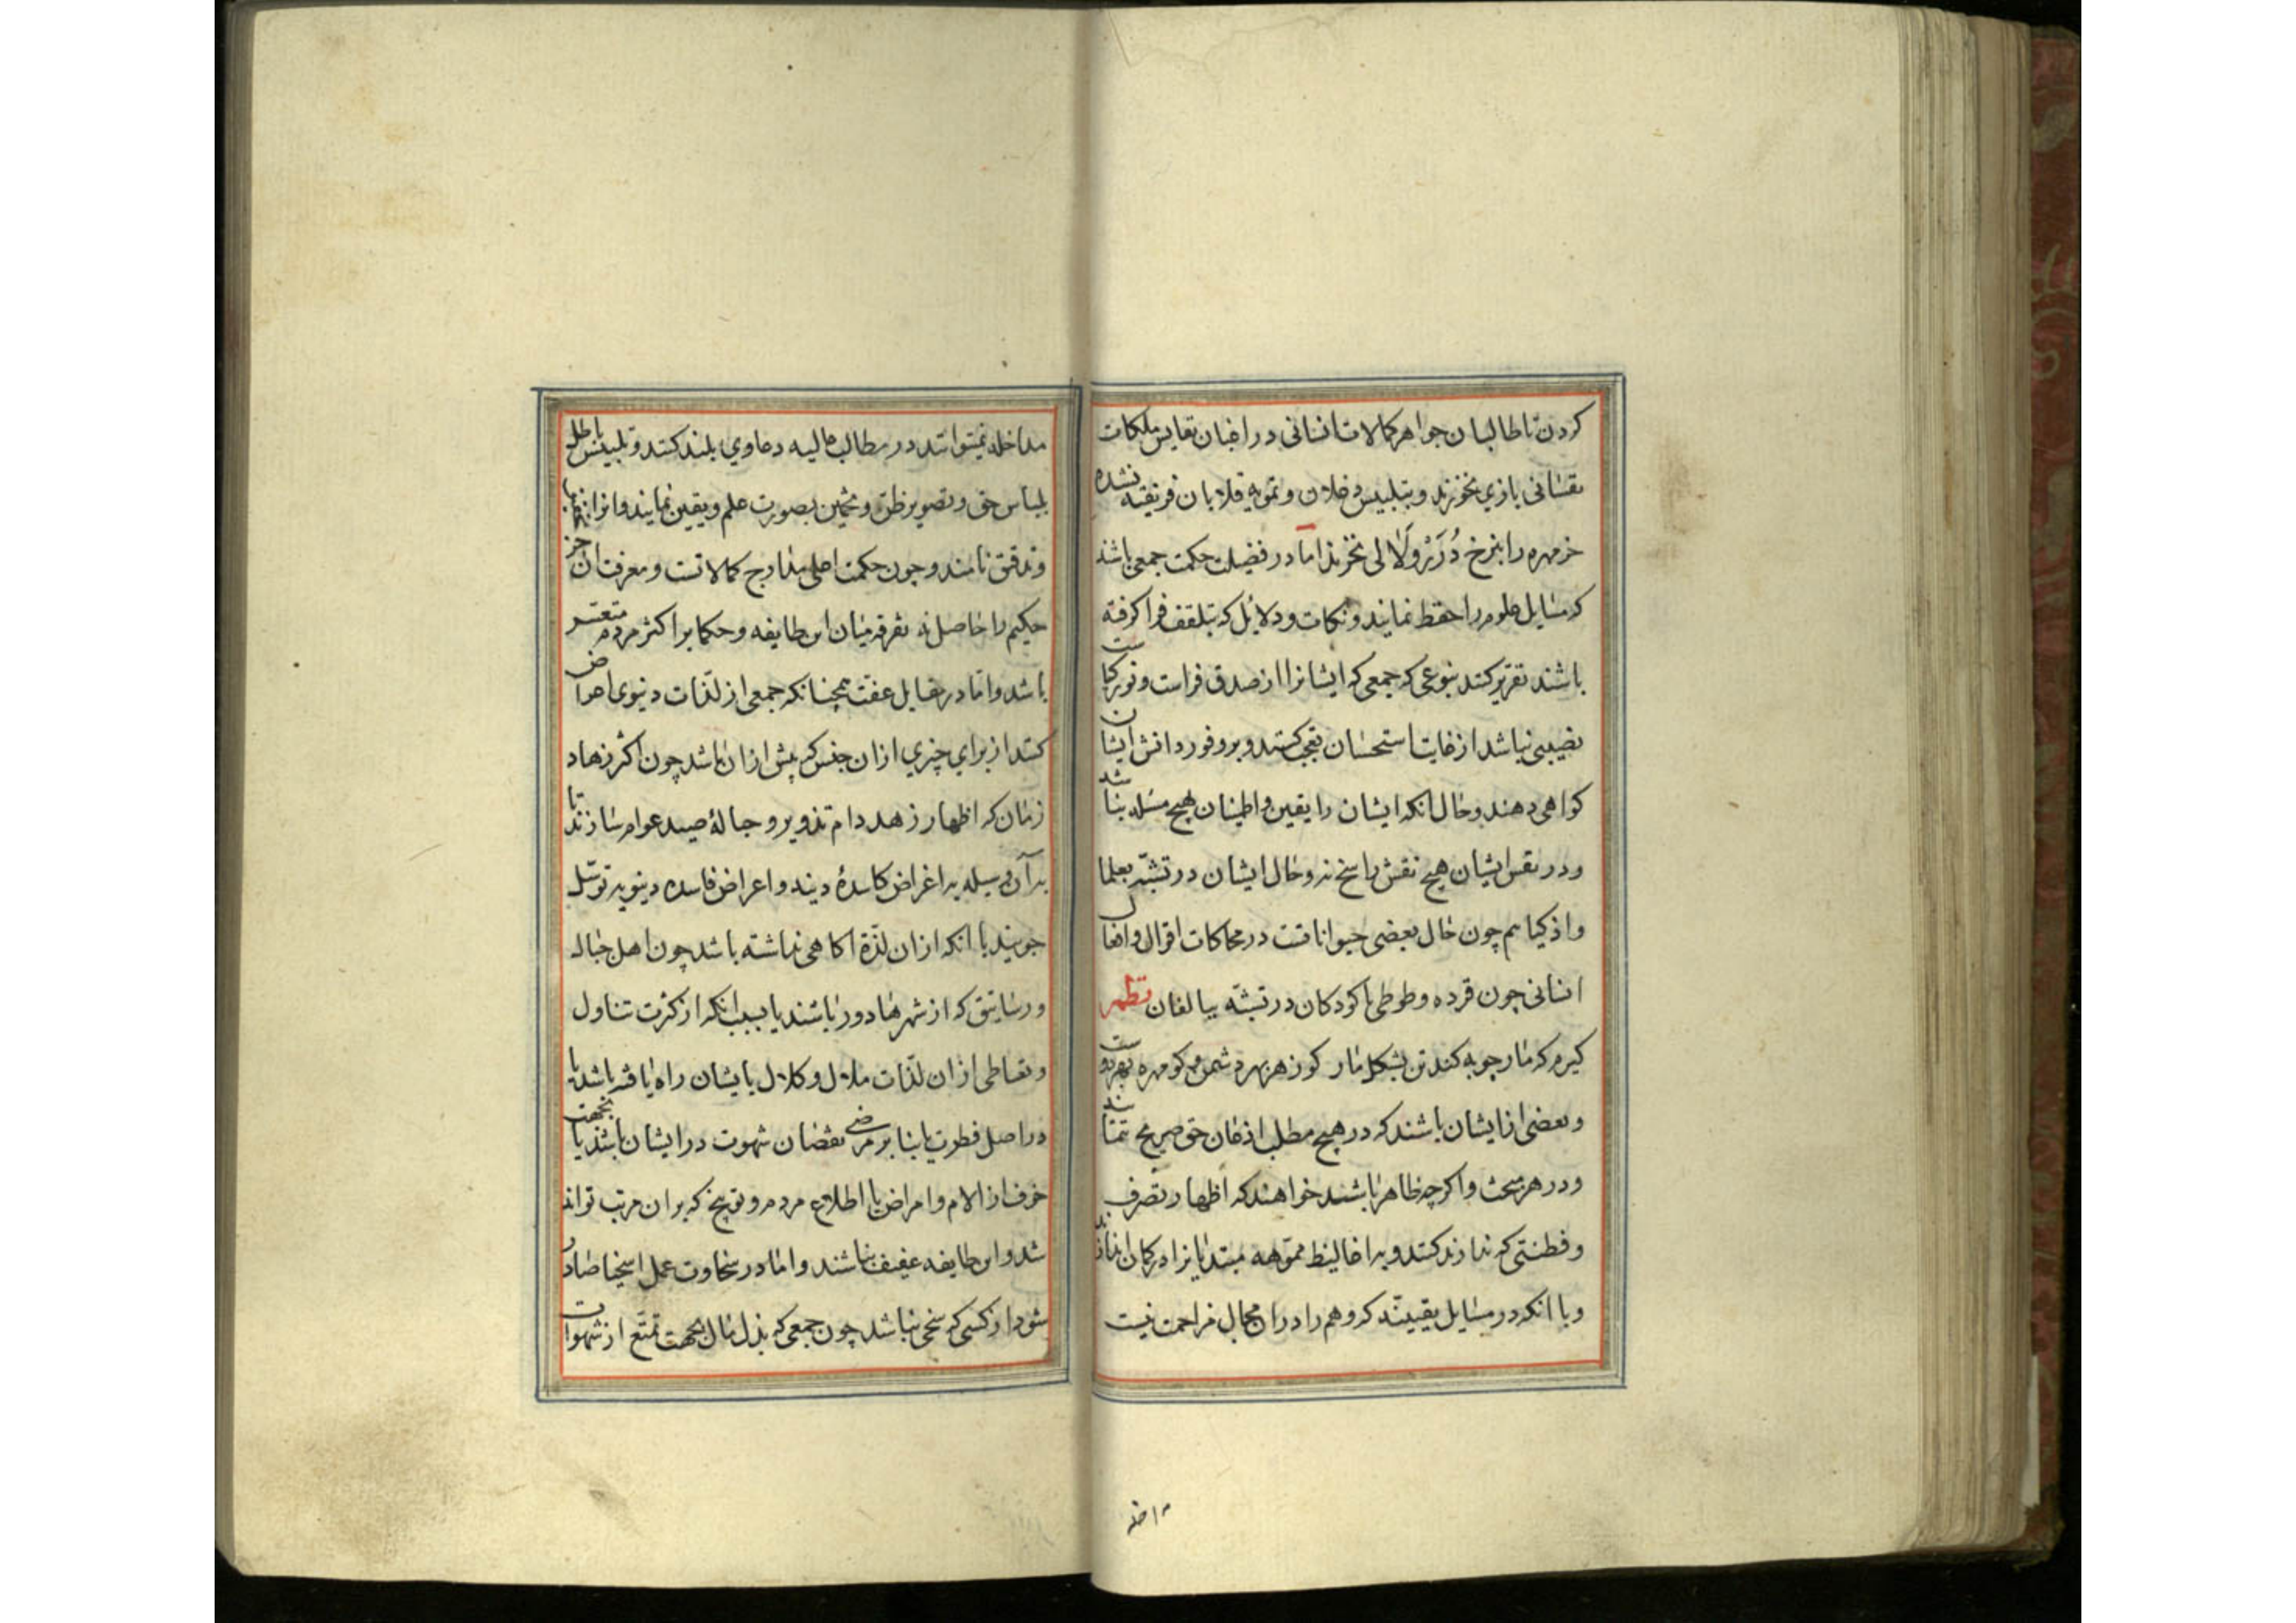 کردن تا طالبان جواهر کمالات انسانی و راغبان نفایس ملکات
نفسانی بازی نخورند و بتلبیس دغلان و تمویه قلابان فریفته نشده
خرمهره را بنرخ دُرَر و لَالی نخرند اما در فضیلت حکمت جمعی باشند
که مسایل علوم را حفظ نمایند و نکات و دلایل که بتلقف فرا کرفته
باشند تقریر کنند بنوعی که جمعی که ایشانرا از صدق فراست و نور کیاست
نصیبی نباشد از غایت استحسان تعجب کنند و بر وفور دانش ایشان
کواهی دهند و حال انکه ایشان را یقین و اطینان بهیچ مسله نباشد
و در نفس ایشان هیچ نقش راسخ نه و حال ایشان در تشبّه بعلما
و اذکیا هم چون حال بعضی حیواناتست در محاکات اقوال و افعال
انسانی چون قرده و طوطی با کودکان در تشبّه ببالغان نظم
کیرم که مار چوبه کند تن بشکل مار کو زهر بهر دشمن و کو مهره بهر دوست
و بعضی از ایشان باشند که در هیچ مطلب اذعان حق صریح ننمایند
و در هر مبحث و اکرچه ظاهر باشند خواهند که اظهار تصرف
و فطنتی که ندارند کنند و به اغالیط مموّهه مبتدیانرا در کمان اندازند
و با انکه در مسایل یقینیّه که وهم را در ان مجال مزاحمت نیست
مداخله
مداخله نمیتوانند در مطالب عالیه دعاوی بلند کنند و تلبیس باطل
بلباس حق و تصویر ظن و تخمین بصورت علم و یقین نمایند و انرا
و تدقق نامند و چون حکمت اعلی مدارج کمالاتست و معرفت ان جز
حکیم را حاصل نه تفرقه میان این طایفه و حکما بر اکثر مردم متعسر
باشد و اما در مقابل عفت همچنانکه جمعی از لذّات دنیوی اعراض
کنند از برای چیزی از ان جنس که بیش از ان باشد چون اکثر زهاد
زمان که اظهار زهد دام تزویر و حبالهٔ صید عوام سازند تا
بدآن وسیله به اغراض کاسدهٔ و اعراض فاسده دینویه توسّل
جویند یا انکه از ان لذّة اکاهی نداشته باشد چون اهل جبال
و رساتیق که از شهرها دور باشند یا بسبب انکه از کثرت تناول
و تعاطی از ان لذّات ملال و کلال بایشان راه یافته باشد یا
در اصل فطرت یا بنا بر مرضی نقصان شهوت در ایشان باشد یا بجهت
خوف از الام و امراض یا اطلاع مردم و توبیخ که بر ان مرتب تواند
شد و این طایفه عفیف نباشند و اما در سخاوت عمل اسخیا صادر
شود از کسی که سخی نباشد چون جمعی که بذل مال بجهت تمتّع از شهوات